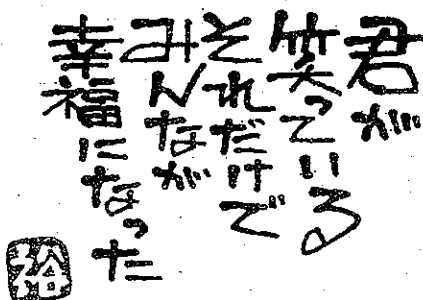 君が
笑っている
それだけで
みんなが
幸福になった
裕